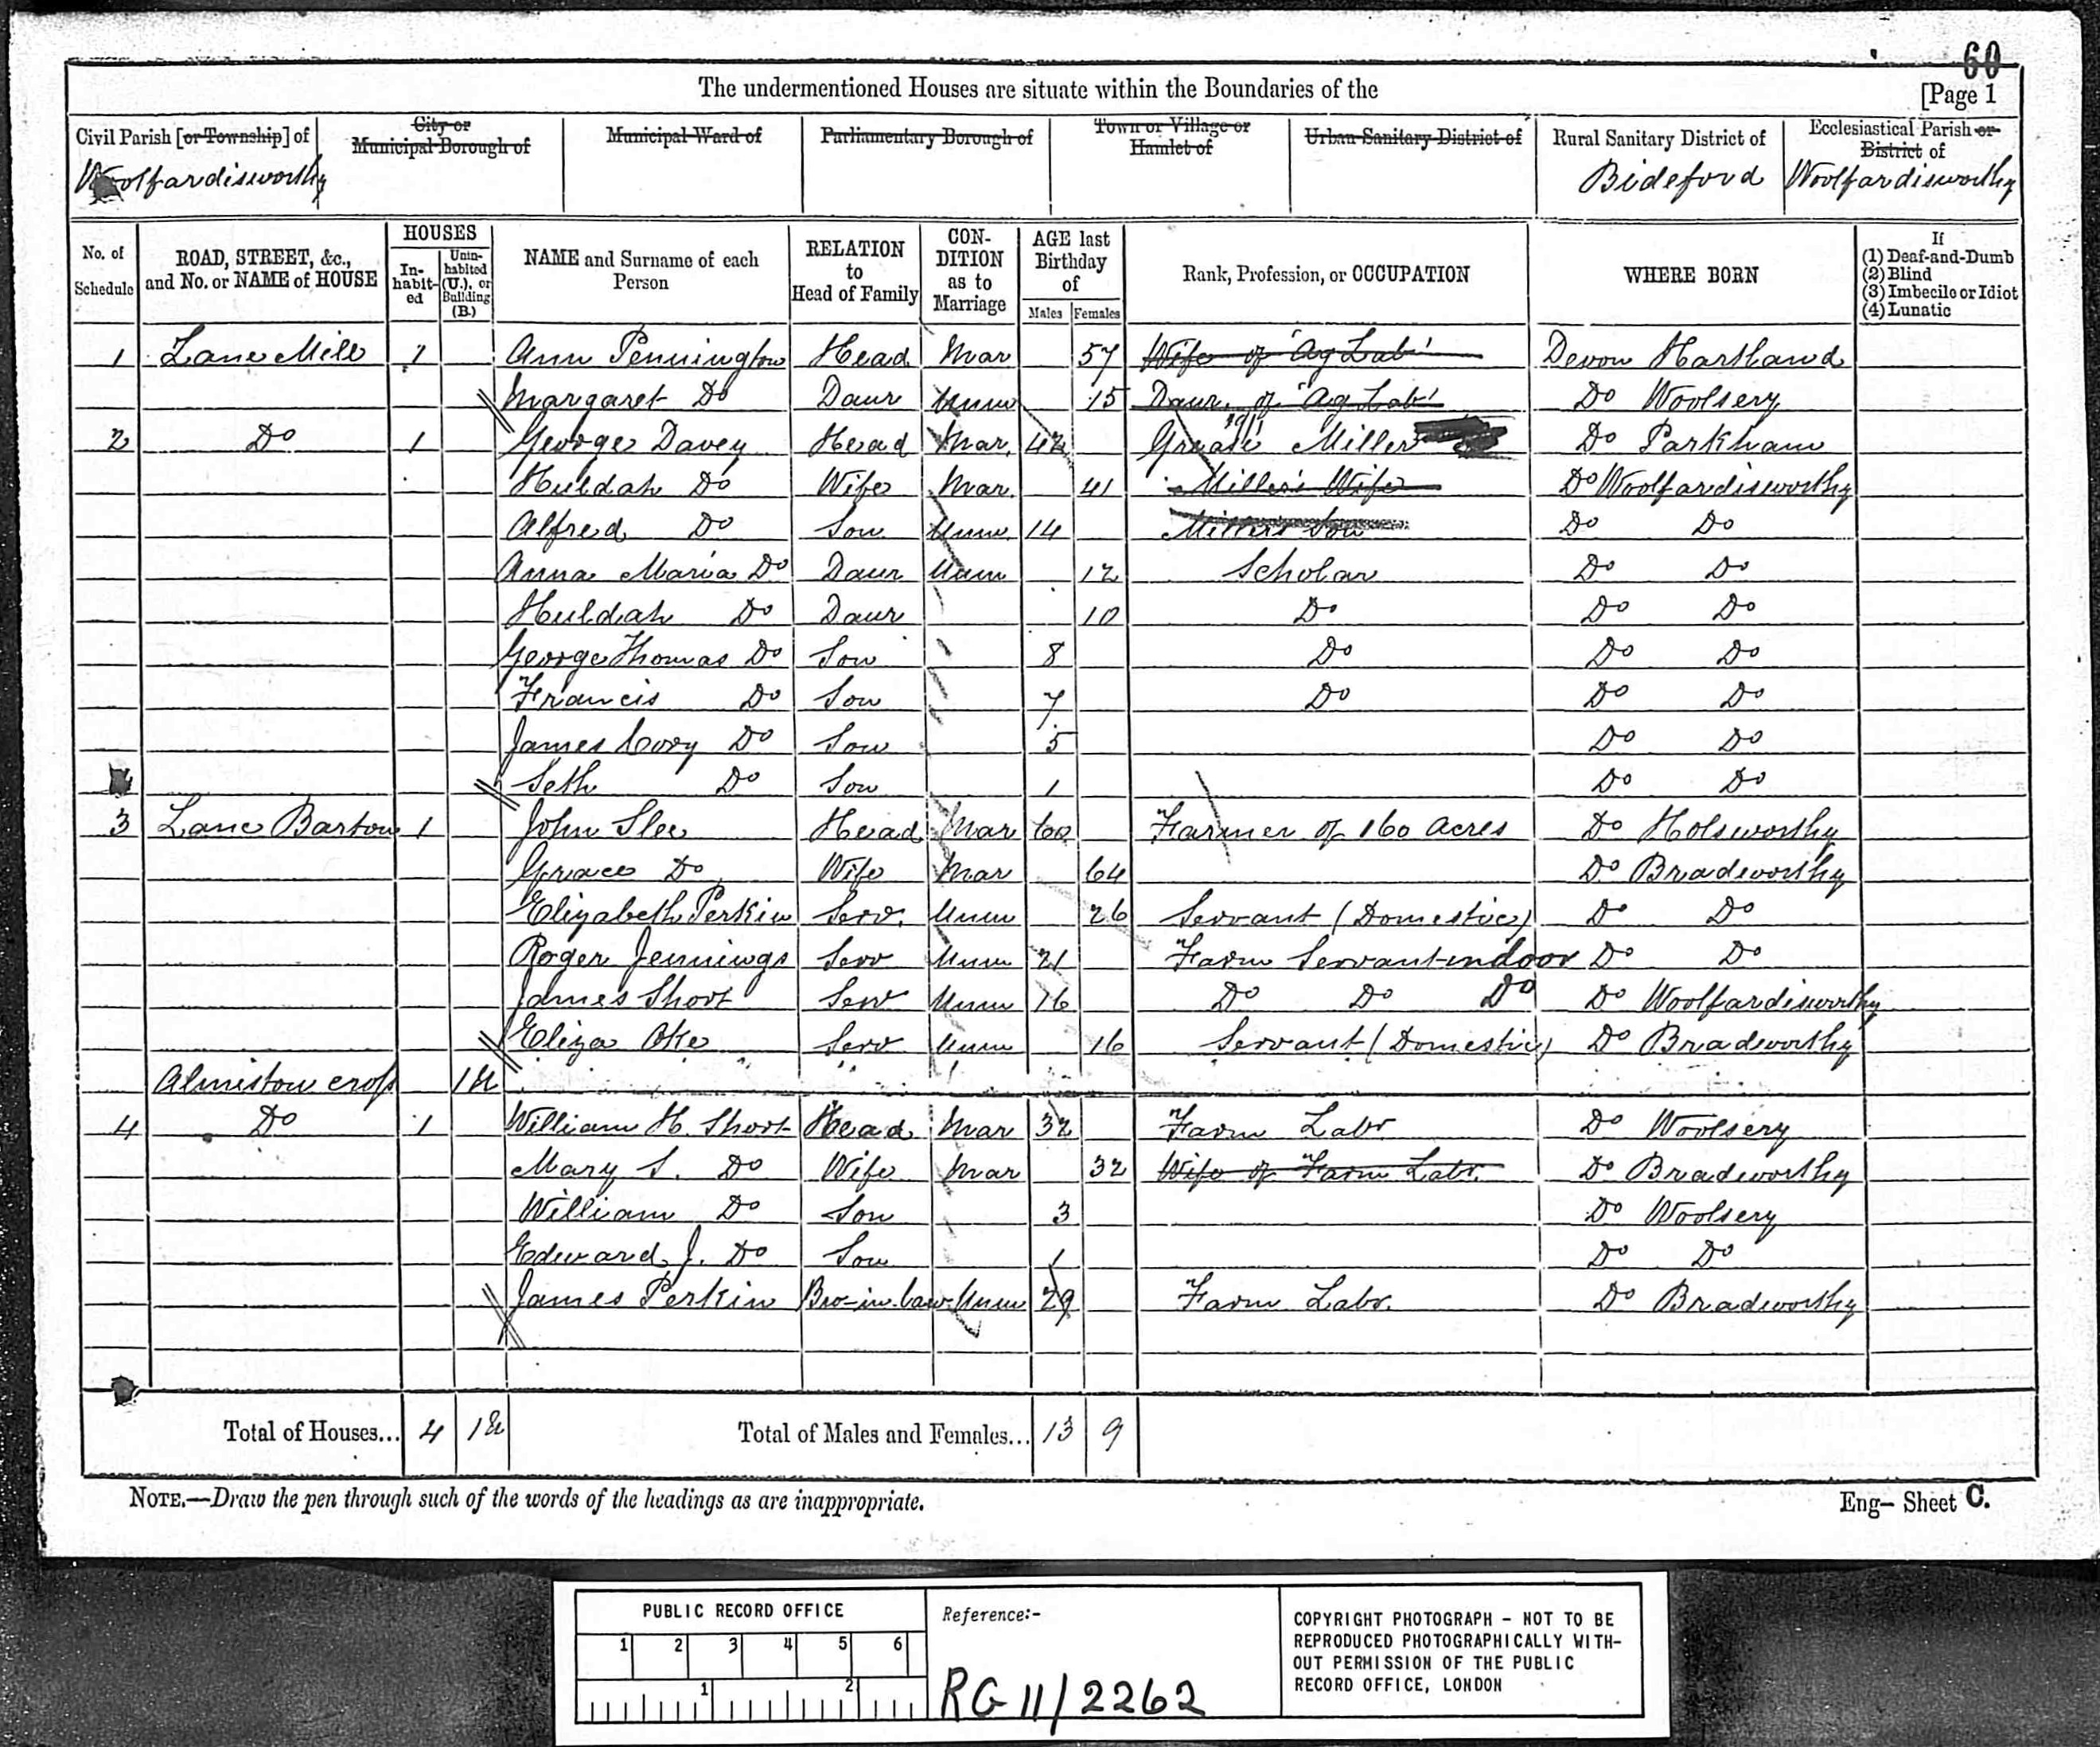 60
The undermentioned Houses are situate within the Boundaries of the
[Page 1
Civil Parish [or Township] of
Woolfardisworthy
City or Municipal Borough of
Municipal Ward of
Parliamentary Borough of
Town or Village or Hamlet of
Urban Sanitary District of
Rural Sanitary District of
Bideford
Ecclesiastical Parish or District of
Woolfardisworthy
No. of Schedule
ROAD, STREET, &c., and No. or NAME of HOUSE
HOUSES
In-habit-ed
Unin-habited (U.), or Building (B.)
NAME and Surname of each Person
RELATION to Head of Family
CON-DITION as to Marriage
AGE last Birthday of
Males Females
Rank, Profession, or OCCUPATION
WHERE BORN
If
(1) Deaf-and-Dumb
(2) Blind
(3) Imbecile or Idiot
(4) Lunatic
1 Lane Mill 1 Ann Pennington Head Mar 57 Wife of "Ag Lab" Devon Hartland
Margaret Do Daur Unm 15 Daur. of "Ag Lab" Do Woolsery
2 Do 1 George Davey Head Mar. 42 Miller Do Parkham
Huldah Do Wife Mar. 41 Miller's Wife Do Woolfardisworthy
Alfred Do Son Unm. 14 Miller's Son Do Do
Anna Maria Do Daur Unm 12 Scholar Do Do
Huldah Do Daur 10 Do Do Do
George Thomas Do Son 8 Do Do Do
Francis Do Son 7 Do Do Do
James Cory Do Son 5 Do Do
Seth Do Son 1 Do Do
3 Lane Barton 1 John Slee Head Mar 60 Farmer of 160 Acres Do Holsworthy
Grace Do Wife Mar 64 Do Bradworthy
Elizabeth Perkin Serv. Unm 26 Servant (Domestic) Do Do
Roger Jennings Serv Unm 21 Farm Servant indoor Do Do
James Short Serv Unm 16 Do Do Do Do Woolfardisworthy
Eliza Oke Serv Unm 16 Servant (Domestic) Do Bradworthy
Almiston cross 1U
4 Do 1 William H. Short Head Mar 32 Farm Labr Do Woolsery
Mary S. Do Wife Mar 32 Wife of Farm Labr. Do Bradworthy
William Do Son 3 Do Woolsery
Edward J. Do Son 1 Do Do
James Perkin Bro-in-law Unm 29 Farm Labr. Do Bradworthy
Total of Houses... 4 1U Total of Males and Females... 13 9
NOTE.—Draw the pen through such of the words of the headings as are inappropriate.
Eng- Sheet C.
PUBLIC RECORD OFFICE
1 2 3 4 5 6
1 2
Reference:-
RG 11/2262
COPYRIGHT PHOTOGRAPH - NOT TO BE
REPRODUCED PHOTOGRAPHICALLY WITH-
OUT PERMISSION OF THE PUBLIC
RECORD OFFICE, LONDON